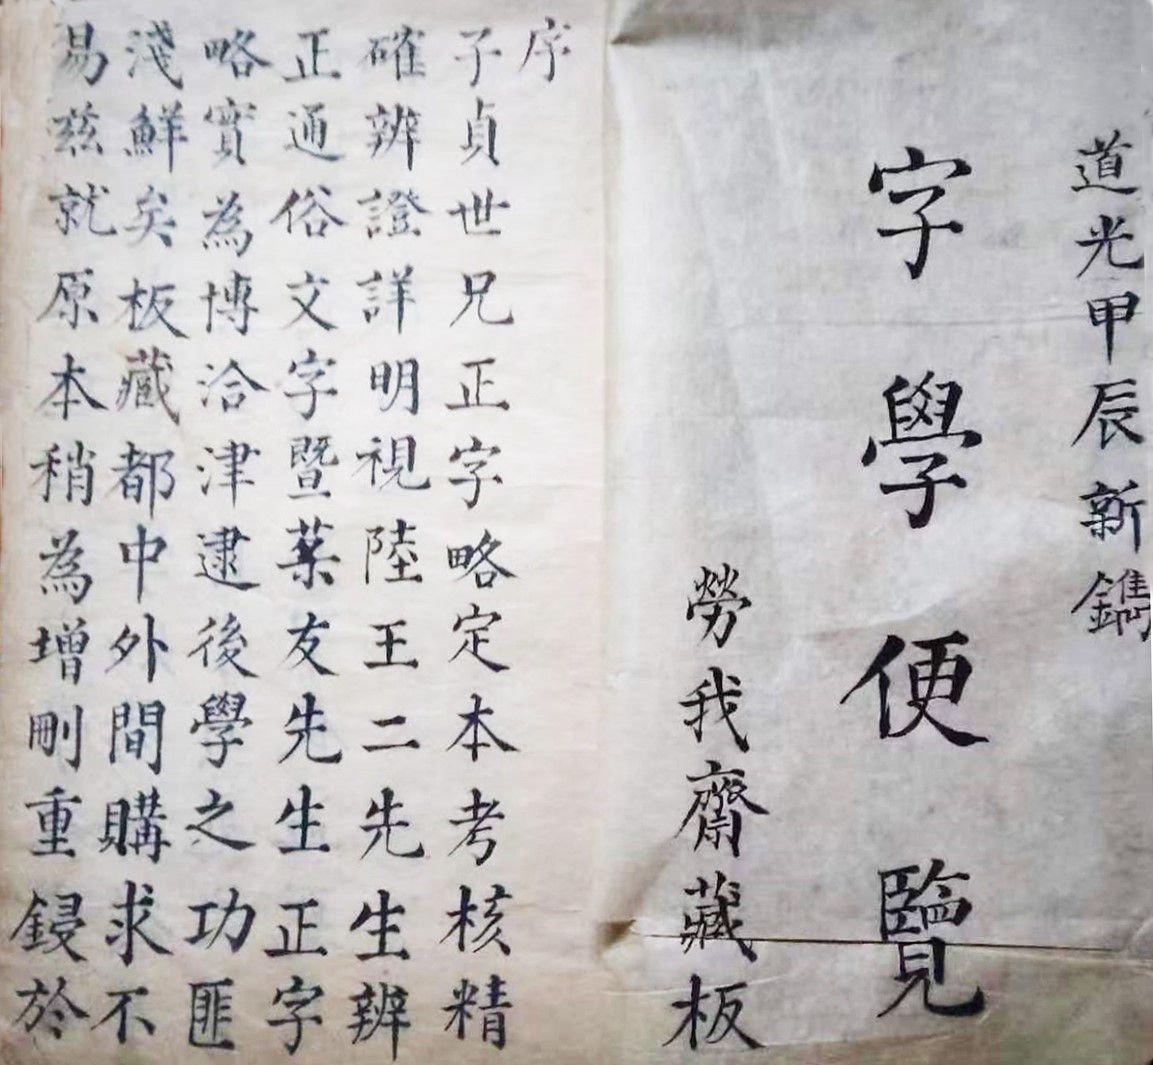 道光甲辰新鐫
字學便覽
勞我齋藏板
序
子貞世兄正字略定本考核精
確辨證詳明視陸王二先生辨
正通俗文字暨菉友先生正字
略實為博洽津逮後學之功匪
淺鮮矣板藏都中外間購求不
易茲就原本稍為增刪重鋟於